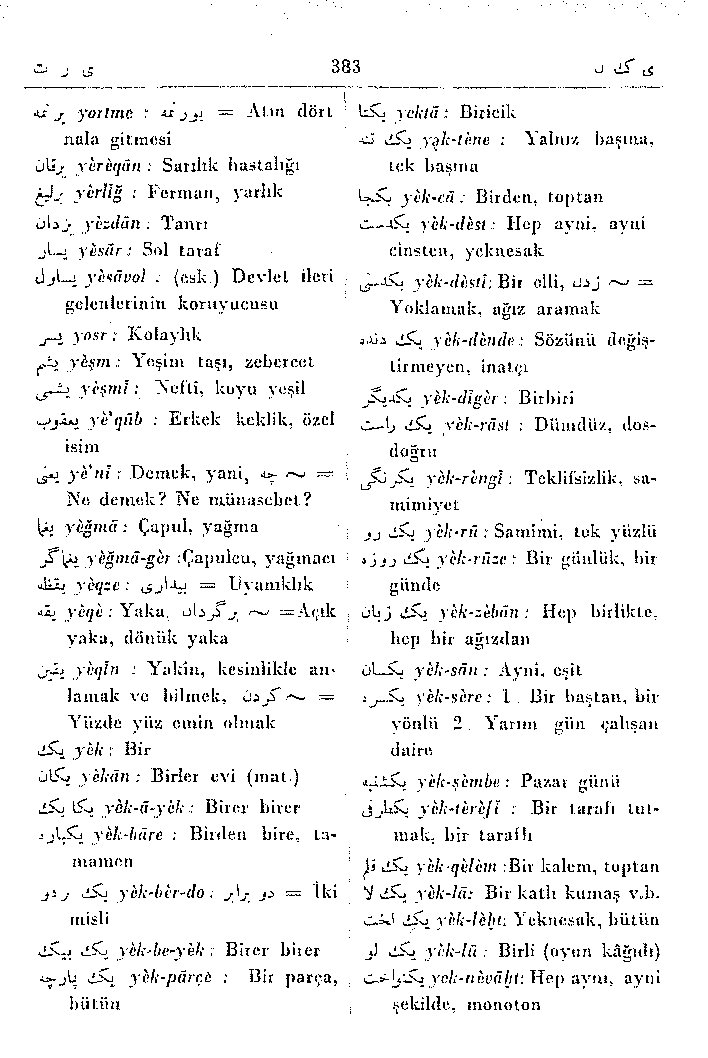 ی ر ت
383
ی ک ل
یرتمه yortme : یورتمه = Atın dört
nala gitmesi
یرقان yèrèqān : Sarılık hastalığı
یرلیغ yèrlīğ : Ferman, yarlık
یزدان yèzdān : Tanrı
یسار yèsār : Sol taraf
یساول yèsāvol : (esk.) Devlet ileri
gelenlerinin koruyucusu
یسر yosr : Kolaylık
یشم yèşm : Yeşim taşı, zebercet
یشمی yèşmī : Nefti, koyu yeşil
یعقوب yè'qūb : Erkek keklik, özel
isim
یعنی yè'nī : Demek, yani, چه ~ =
Ne demek? Ne münasebet?
یغما yèğmā : Çapul, yağma
یغماگر yèğmā-gèr :Çapulcu, yağmacı
یقظه yèqze : بیداری = Uyanıklık
یقه yèqè : Yaka, برگردان ~ =Açık
yaka, dönük yaka
یقین yèqīn : Yakîn, kesinlikle an-
lamak ve bilmek, کردن ~ =
Yüzde yüz emin olmak
یک yèk : Bir
یکان yèkān : Birler evi (mat.)
یکایک yèk-ā-yèk : Birer birer
یکباره yèk-bāre : Birden bire, ta-
mamen
یک بردو yèk-bèr-do : دو برابر = İki
misli
یک بیک yèk-be-yèk : Birer birer
یک پارچه yèk-pārçe : Bir parça,
bütün
یکتا yektā : Biricik
یک تنه yèk-tène : Yalnız başına,
tek başına
یکجا yèk-cā : Birden, toptan
یکدست yèk-dèst : Hep ayni, ayni
cinsten, yeknesak
یکدستی yèk-dèstī: Bir elli, زدن ~ =
Yoklamak, ağız aramak
یک دنده yèk-dènde : Sözünü değiş-
tirmeyen, inatçı
یکدیگر yèk-dīgèr : Birbiri
یک راست yèk-rāst : Dümdüz, dos-
doğru
یکرنگی yèk-rèngī : Teklifsizlik, sa-
mimiyet
یک رو yèk-rū : Samimi, tek yüzlü
یک روزه yèk-rūze : Bir günlük, bir
günde
یک زبان yèk-zèbān : Hep birlikte,
hep bir ağızdan
یکسان yèk-sān : Ayni, eşit
یکسره yèk-sère : 1. Bir baştan, bir
yönlü 2. Yarım gün çalışan
daire
یکشنبه yèk-şèmbe : Pazar günü
یکطرفی yèk-tèrèfī : Bir tarafı tut-
mak, bir taraflı
یک قلم yèk-qèlèm :Bir kalem, toptan
یک لا yèk-lā: Bir katlı kumaş v.b.
یک لخت yèk-lèḫt: Yeknesak, bütün
یک لو yèk-lū : Birli (oyun kâğıdı)
یکنواخت yek-nèvāḫt: Hep aynı, ayni
şekilde, monoton